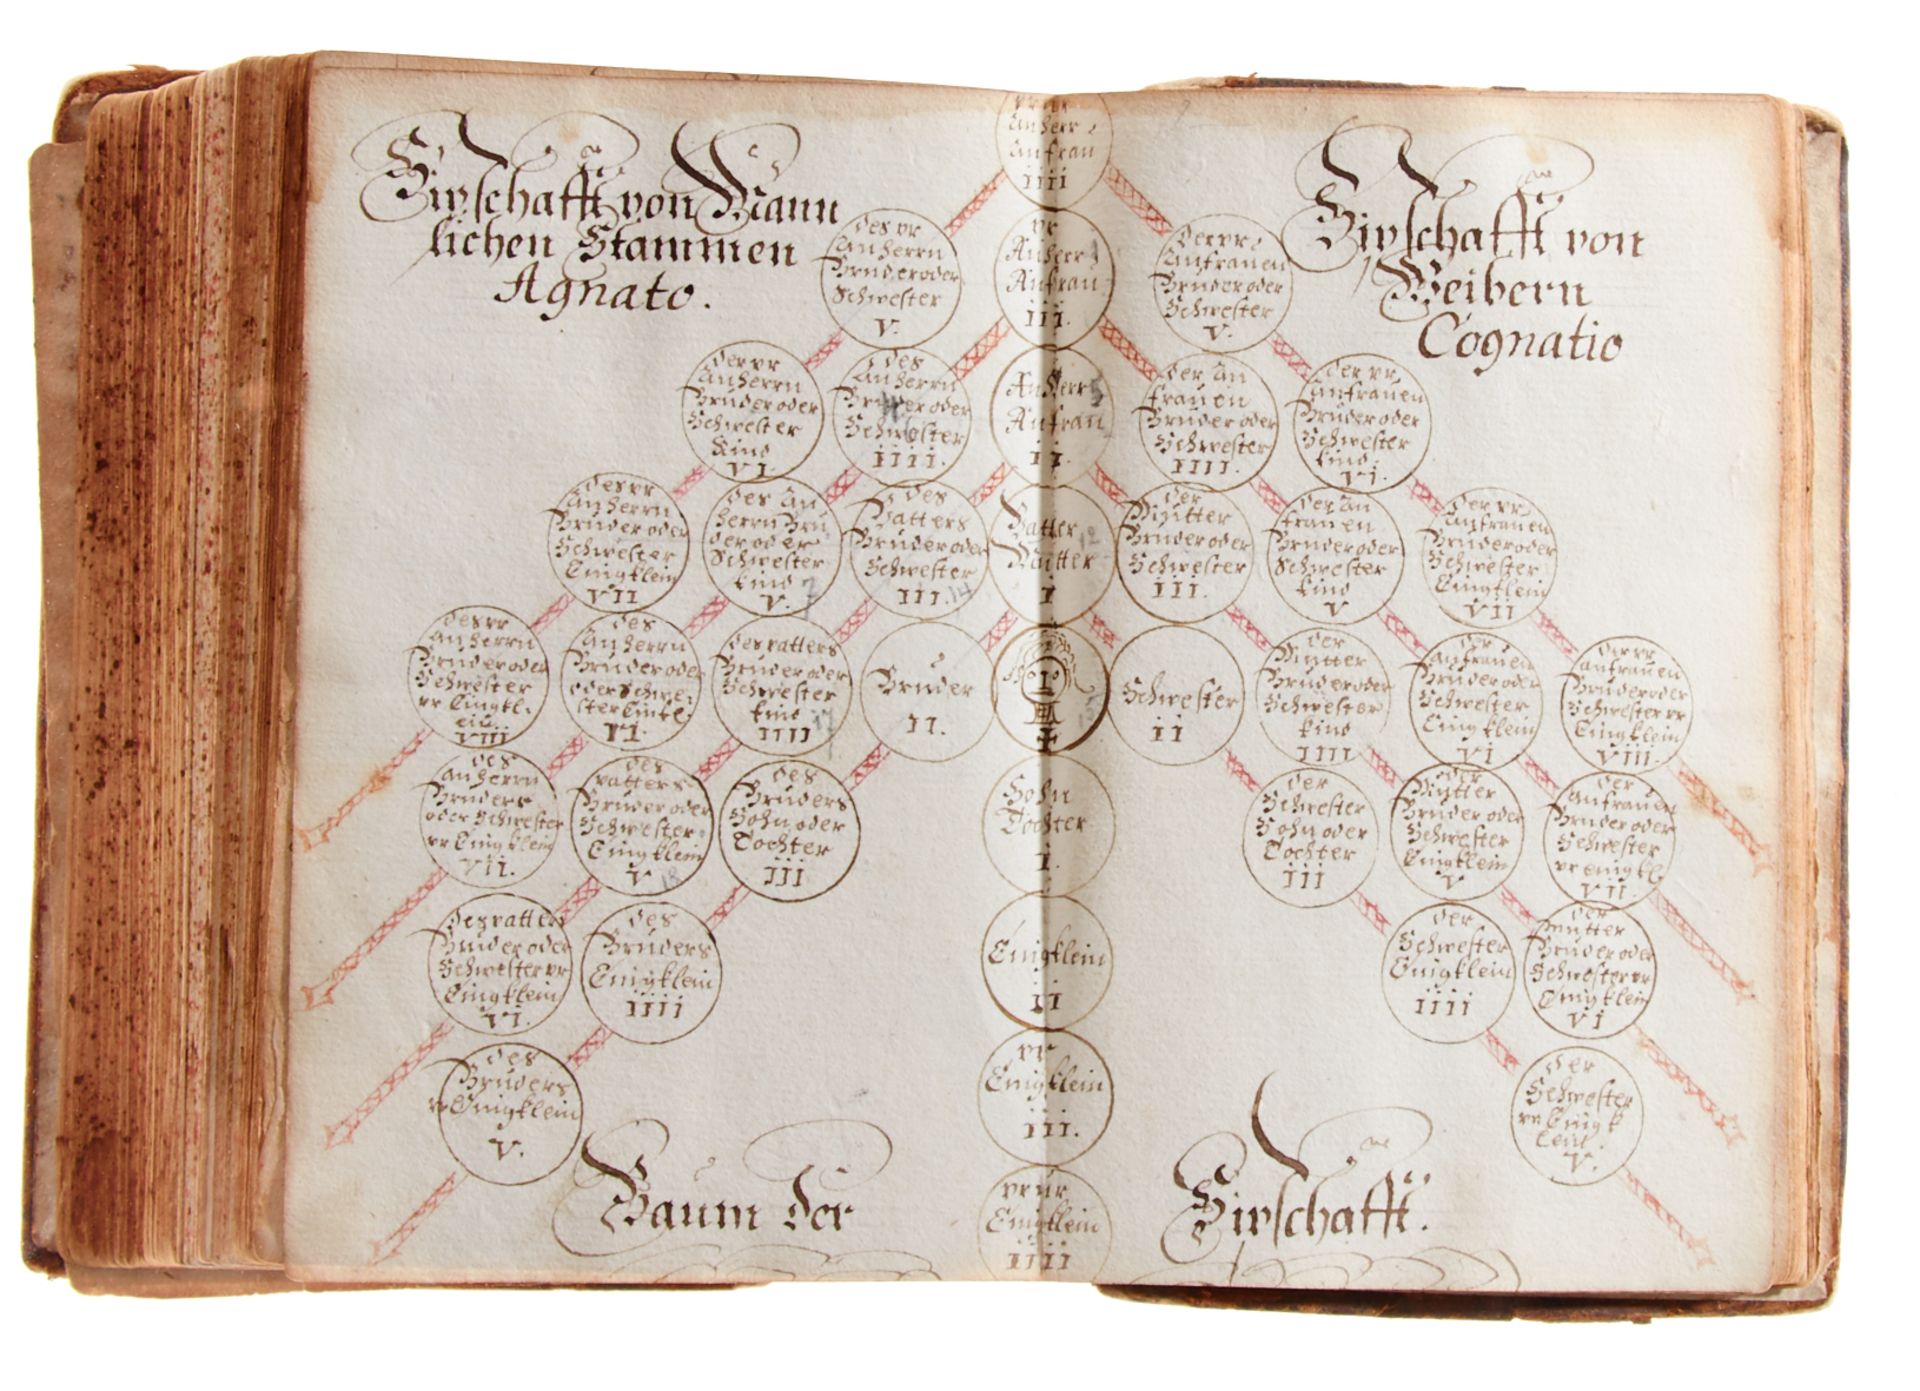 Sipschafft von Mann
lichen Stammen
Agnato.
Sipschafft von
Weibern
Cognatio
vr vr
Anherr
Anfrau
iiii
des vr
Anherrn
Bruder oder
Schwester
V.
vr
Anherr
Anfrau
iii.
der vr
Anfrauen
Bruder oder
Schwester
V.
der vr
Anherrn
Bruder oder
Schwester
Kind
VI.
des
Anherrn
Bruder oder
Schwester
iiii.
Anherr
Anfrau
ii.
der An
frauen
Bruder oder
Schwester
IIII.
der vr
Anfrauen
Bruder oder
Schwester
kind.
VI.
des vr
Anherrn
Bruder oder
Schwester
Enigklein
VII
des An
herrn Bru
der oder
Schwester
kind
V.
des
Vatters
Bruder oder
Schwester
III.
14
Vatter
Mutter
I
der
Mutter
Bruder oder
Schwester
III.
der An
frauen
Bruder oder
Schwester
kind
V
der vr
Anfrauen
Bruder oder
Schwester
Enigklein
VII
des vr
Anherrn
Bruder oder
Schwester
vr Enigkl
ein.
VIII
des
Anherrn
Bruder oder
oder Schwe
ster Enikl.
VI.
des vatters
Bruder oder
Schwester
kind
IIII
17
Bruder
II.
Schwester
ii
der
Mutter
Bruder oder
Schwester
kind
IIII
der
Anfrauen
Bruder oder
Schwester
Enigklein
VI
der vr
anfrauen
Bruder oder
Schwester vr
Enigklein
VIII.
des
anherrn
Bruders
oder Schwester
vr Enigklein
VII.
des
vatters
Bruder oder
Schwester
Enigklein
V
18
des
Bruders
Sohn oder
Tochter
III
Sohn
Tochter
I.
der
Schwester
Sohn oder
Tochter
III
der
Mutter
Bruder oder
Schwester
Enigklein
V
der
Anfrauen
Bruder oder
Schwester
vr enigkl.
VII.
des vatters
Bruder oder
Schwester vr
Enigklein
VI.
des
Bruders
Enigklein
IIII
Enigklein
II
der
Schwester
Enigklein
IIII
der
Mutter
Bruder oder
Schwester vr
Enigklein
VI
des
Bruders
vr Enigklein
V.
vr
Enigklein
iii.
der
Schwester
vr Enigk
lein.
V.
vr ur
Enigklein
iiii
Baum der
Sipschafft.